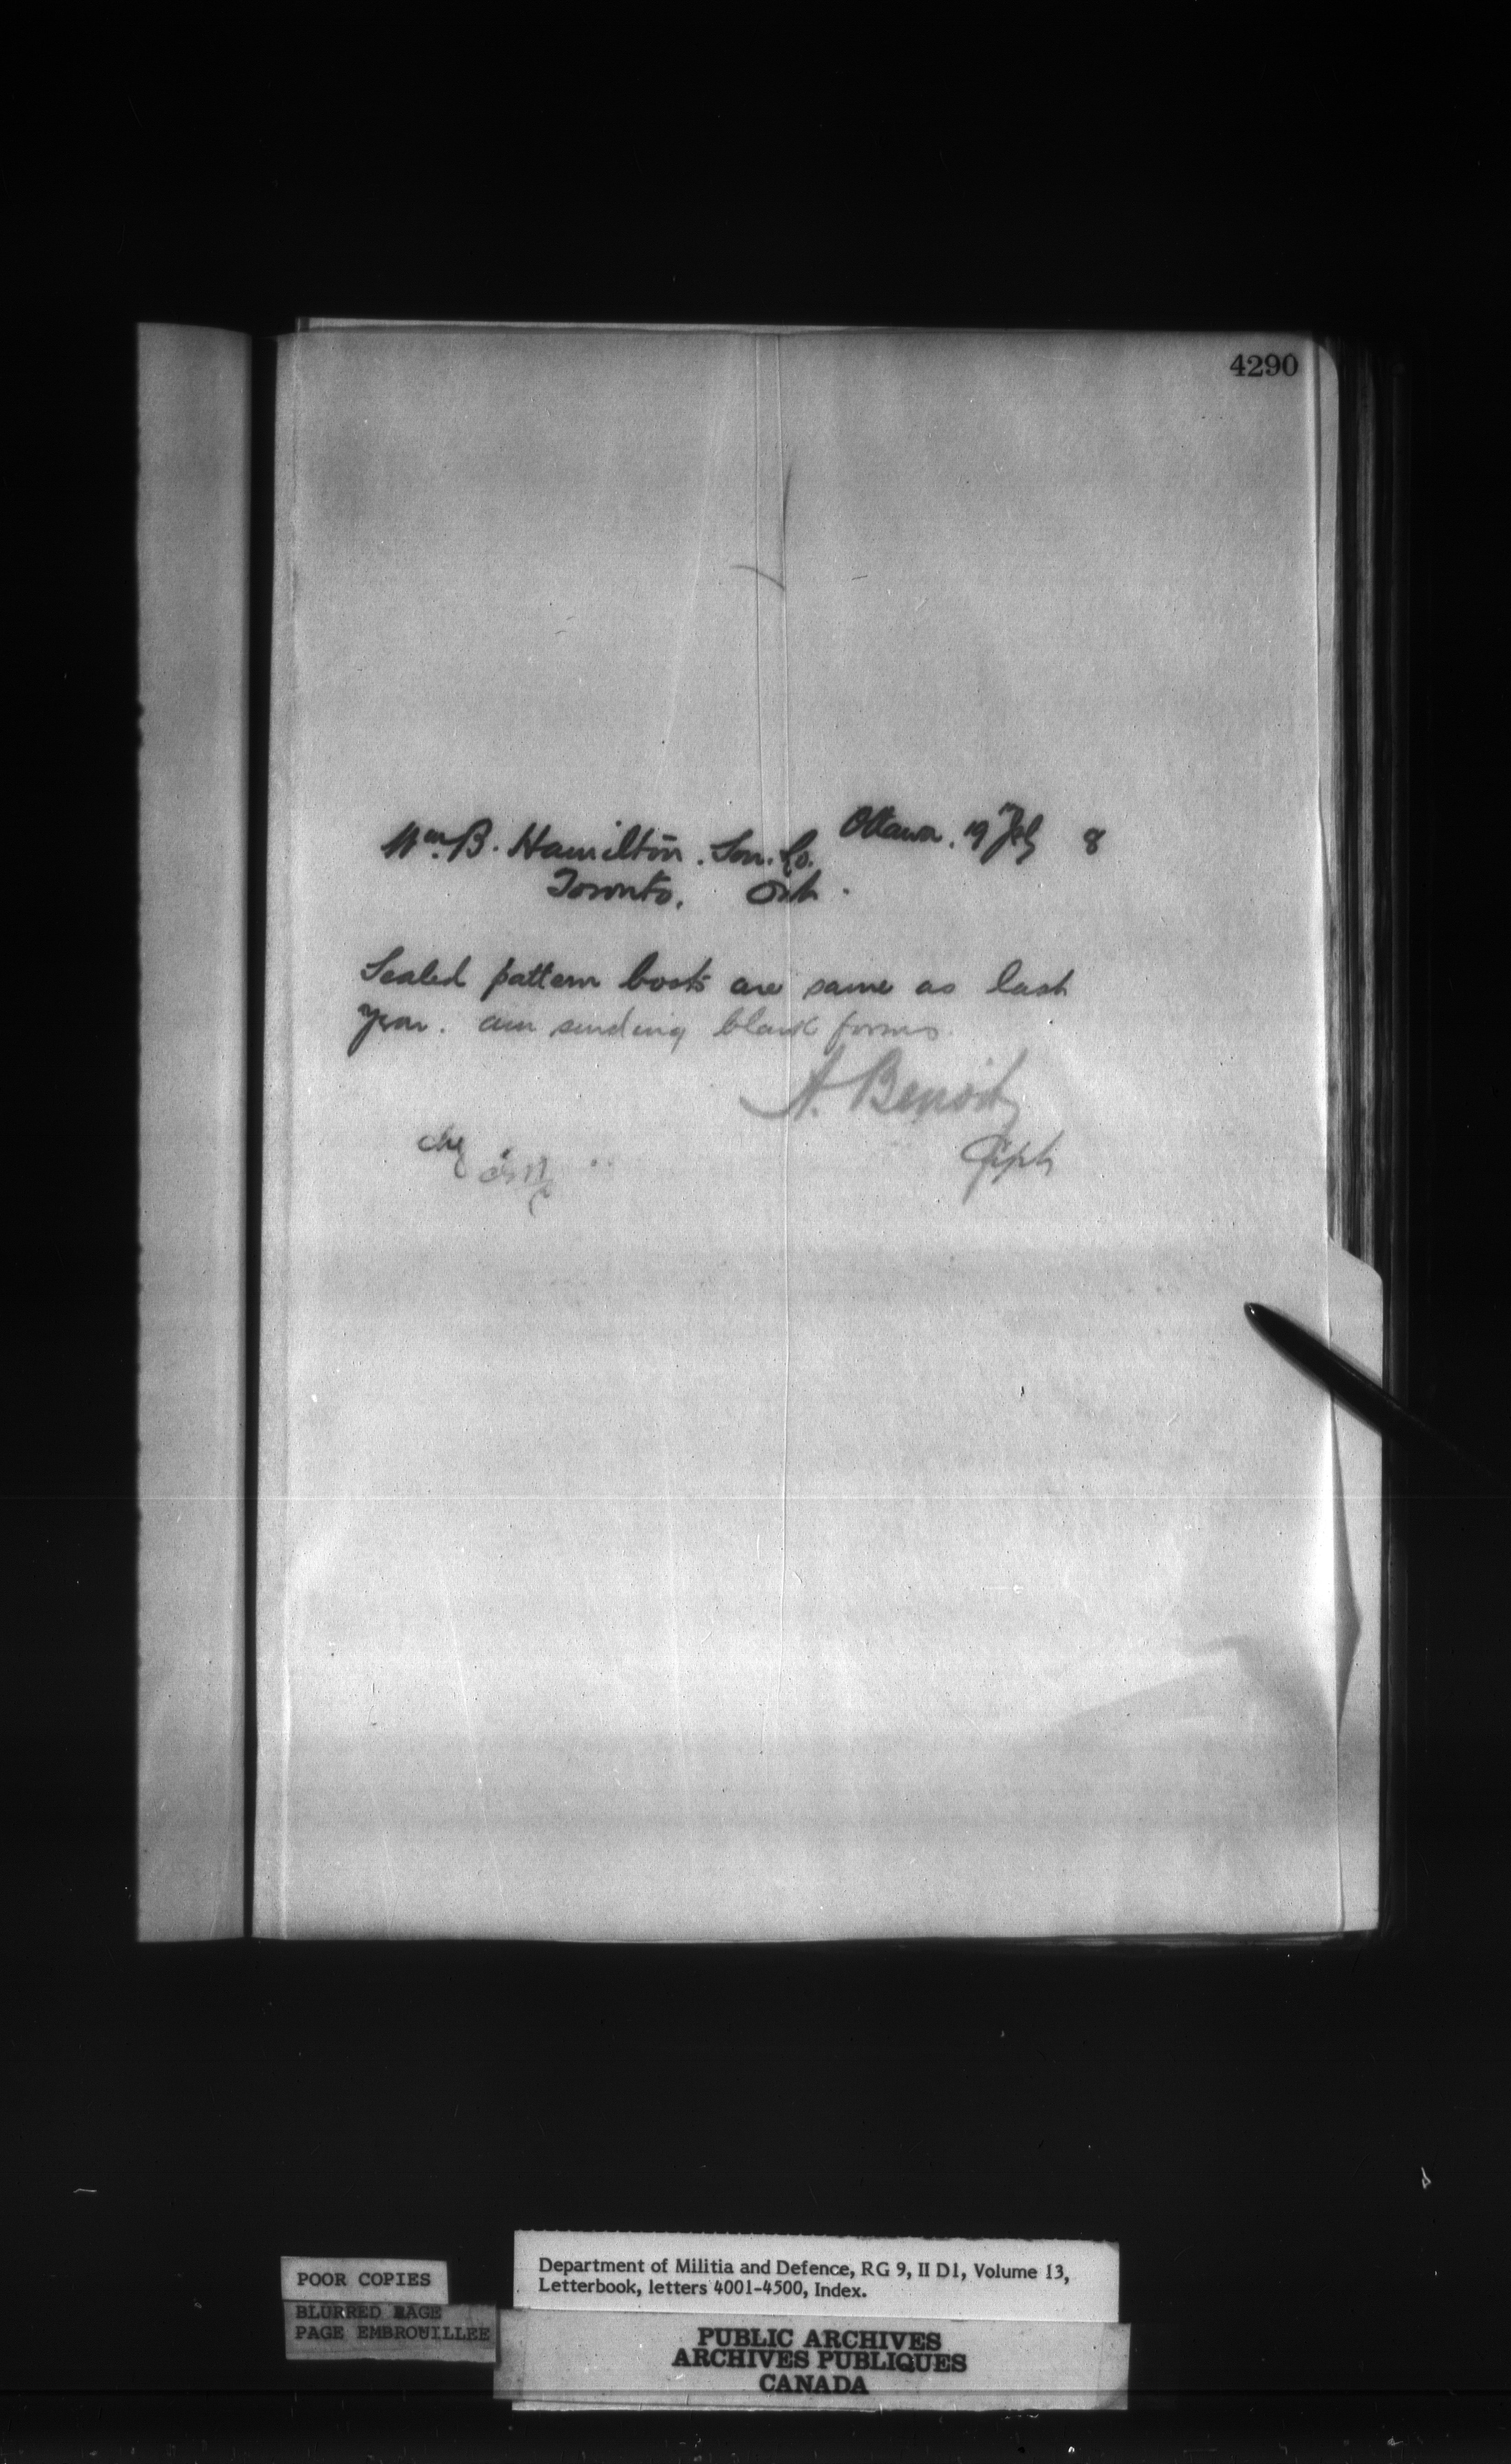 4290
Ottawa. 19 July 8
Wm. B. Hamilton. Son. Co.
Toronto. Ont.
Sealed pattern boots are same as last
year. am sending blank forms
A. Benoit
Chg
POOR COPIES
BLURRED PAGE
PAGE EMBROUILLEE
Department of Militia and Defence, RG 9, II D1, Volume 13,
Letterbook, letters 4001-4500, Index.
PUBLIC ARCHIVES
ARCHIVES PUBLIQUES
CANADA